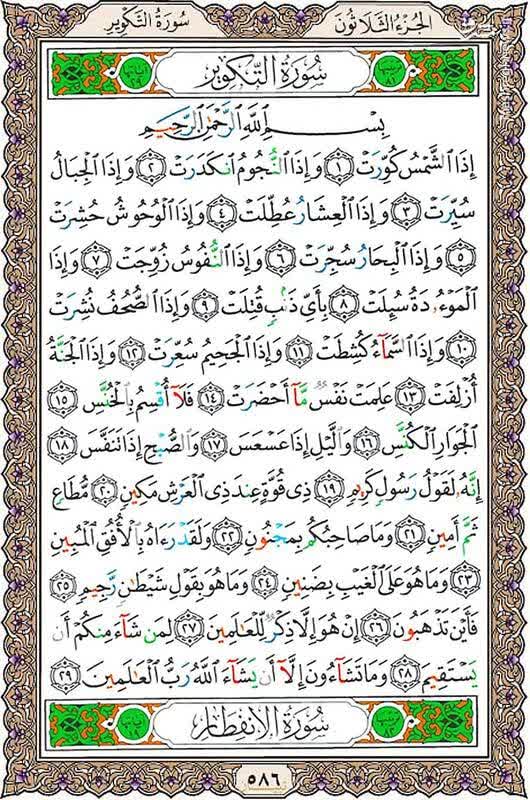 سُورَةُ التَّكْوِيرِ الجُزْءُ الثَّلَاثُونَ
سُورَةُ التَّكْوِيرِ
بِسْمِ ٱللَّهِ ٱلرَّحْمَٰنِ ٱلرَّحِيمِ
إِذَا ٱلشَّمْسُ كُوِّرَتْ ١ وَإِذَا ٱلنُّجُومُ ٱنكَدَرَتْ ٢ وَإِذَا ٱلْجِبَالُ
سُيِّرَتْ ٣ وَإِذَا ٱلْعِشَارُ عُطِّلَتْ ٤ وَإِذَا ٱلْوُحُوشُ حُشِرَتْ
٥ وَإِذَا ٱلْبِحَارُ سُجِّرَتْ ٦ وَإِذَا ٱلنُّفُوسُ زُوِّجَتْ ٧ وَإِذَا
ٱلْمَوْءُۥدَةُ سُئِلَتْ ٨ بِأَيِّ ذَنۢبٍ قُتِلَتْ ٩ وَإِذَا ٱلصُّحُفُ نُشِرَتْ
١٠ وَإِذَا ٱلسَّمَآءُ كُشِطَتْ ١١ وَإِذَا ٱلْجَحِيمُ سُعِّرَتْ ١٢ وَإِذَا ٱلْجَنَّةُ
أُزْلِفَتْ ١٣ عَلِمَتْ نَفْسٌ مَّآ أَحْضَرَتْ ١٤ فَلَآ أُقْسِمُ بِٱلْخُنَّسِ ١٥
ٱلْجَوَارِ ٱلْكُنَّسِ ١٦ وَٱلَّيْلِ إِذَا عَسْعَسَ ١٧ وَٱلصُّبْحِ إِذَا تَنَفَّسَ ١٨
إِنَّهُۥ لَقَوْلُ رَسُولٍ كَرِيمٍ ١٩ ذِى قُوَّةٍ عِندَ ذِى ٱلْعَرْشِ مَكِينٍ ٢٠ مُّطَاعٍ
ثَمَّ أَمِينٍ ٢١ وَمَا صَاحِبُكُم بِمَجْنُونٍ ٢٢ وَلَقَدْ رَءَاهُ بِٱلْأُفُقِ ٱلْمُبِينِ
٢٣ وَمَا هُوَ عَلَى ٱلْغَيْبِ بِضَنِينٍ ٢٤ وَمَا هُوَ بِقَوْلِ شَيْطَٰنٍ رَّجِيمٍ ٢٥
فَأَيْنَ تَذْهَبُونَ ٢٦ إِنْ هُوَ إِلَّا ذِكْرٌ لِّلْعَالَمِينَ ٢٧ لِمَن شَآءَ مِنكُمْ أَن
يَسْتَقِيمَ ٢٨ وَمَا تَشَآءُونَ إِلَّآ أَن يَشَآءَ ٱللَّهُ رَبُّ ٱلْعَالَمِينَ ٢٩
سُورَةُ الِانفِطَارِ
٥٨٦